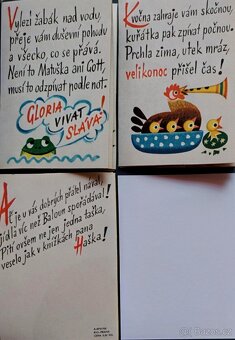 Vylezl žabák nad vodu,
přeje vám duševní pohodu
a všecko, co se přává.
Není to Matuška ani Gott,
musí to odzpívat podle not.
GLORIA
VIVAT
SLÁVA!
Kočna zahraje vám skočnou,
kuřátka pak zpívat počnou.
Prchla zima, utek mráz,
velikonoc přišel čas!
Ať je u vás dobrých přátel nával,
jídla víc než Baloun spořádával!
Pití ovšem ne jen jedna taška,
veselo jak v knížkách pana
Haška!
Bazos.cz